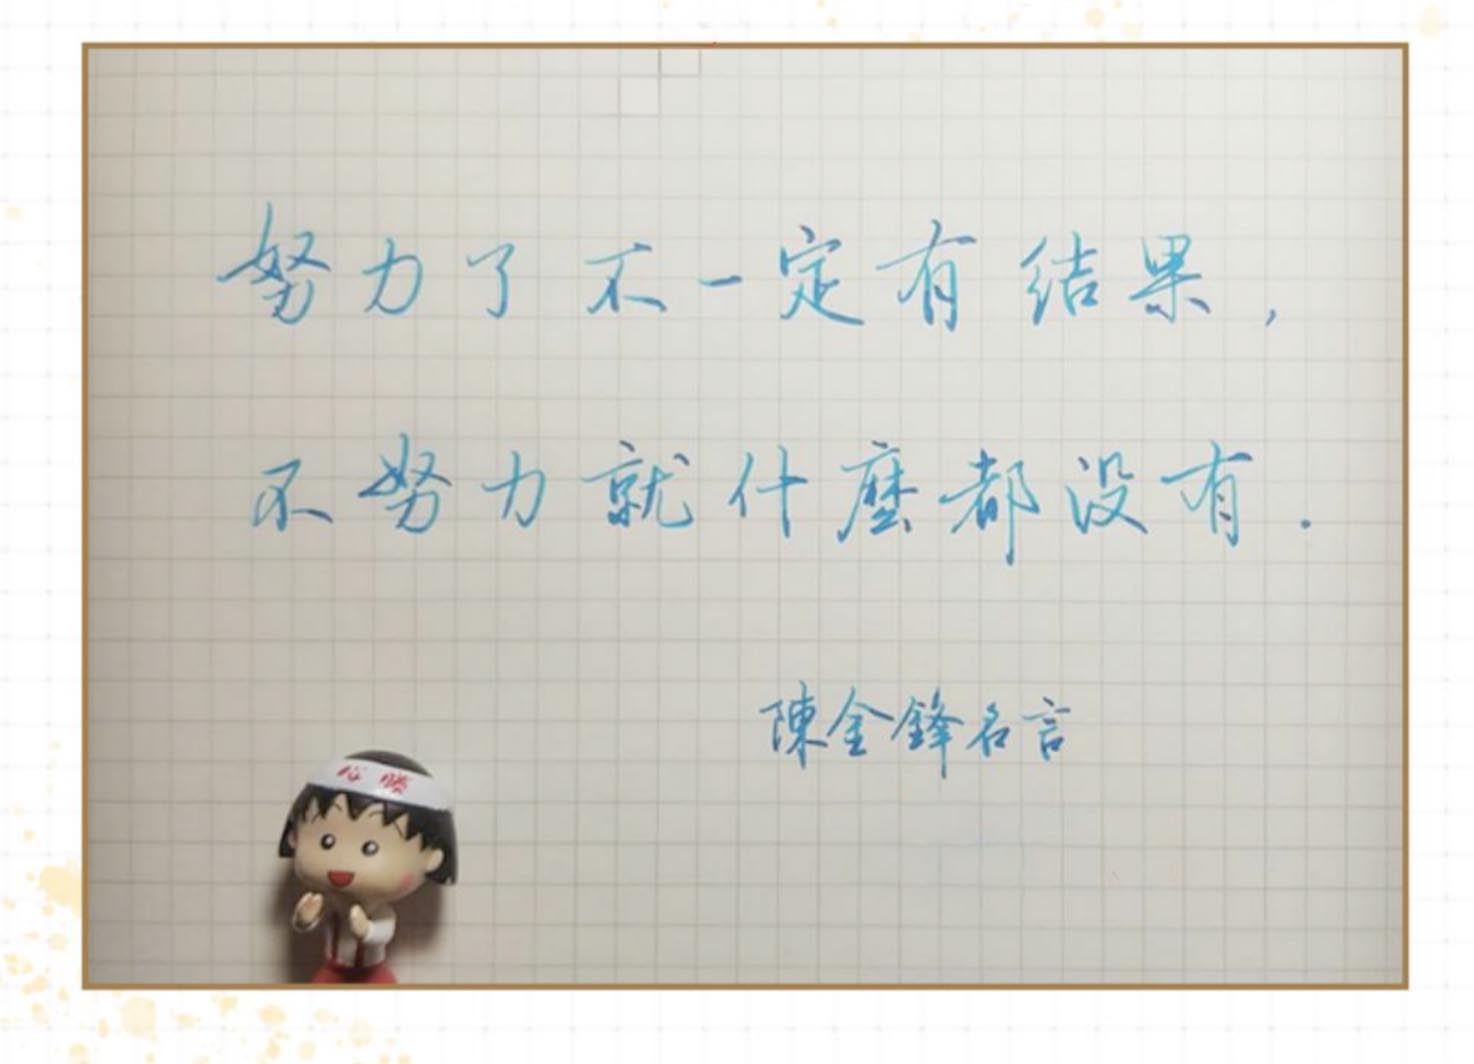 努力了不一定有结果,
不努力就什麼都没有.
陳金鋒名言
必勝